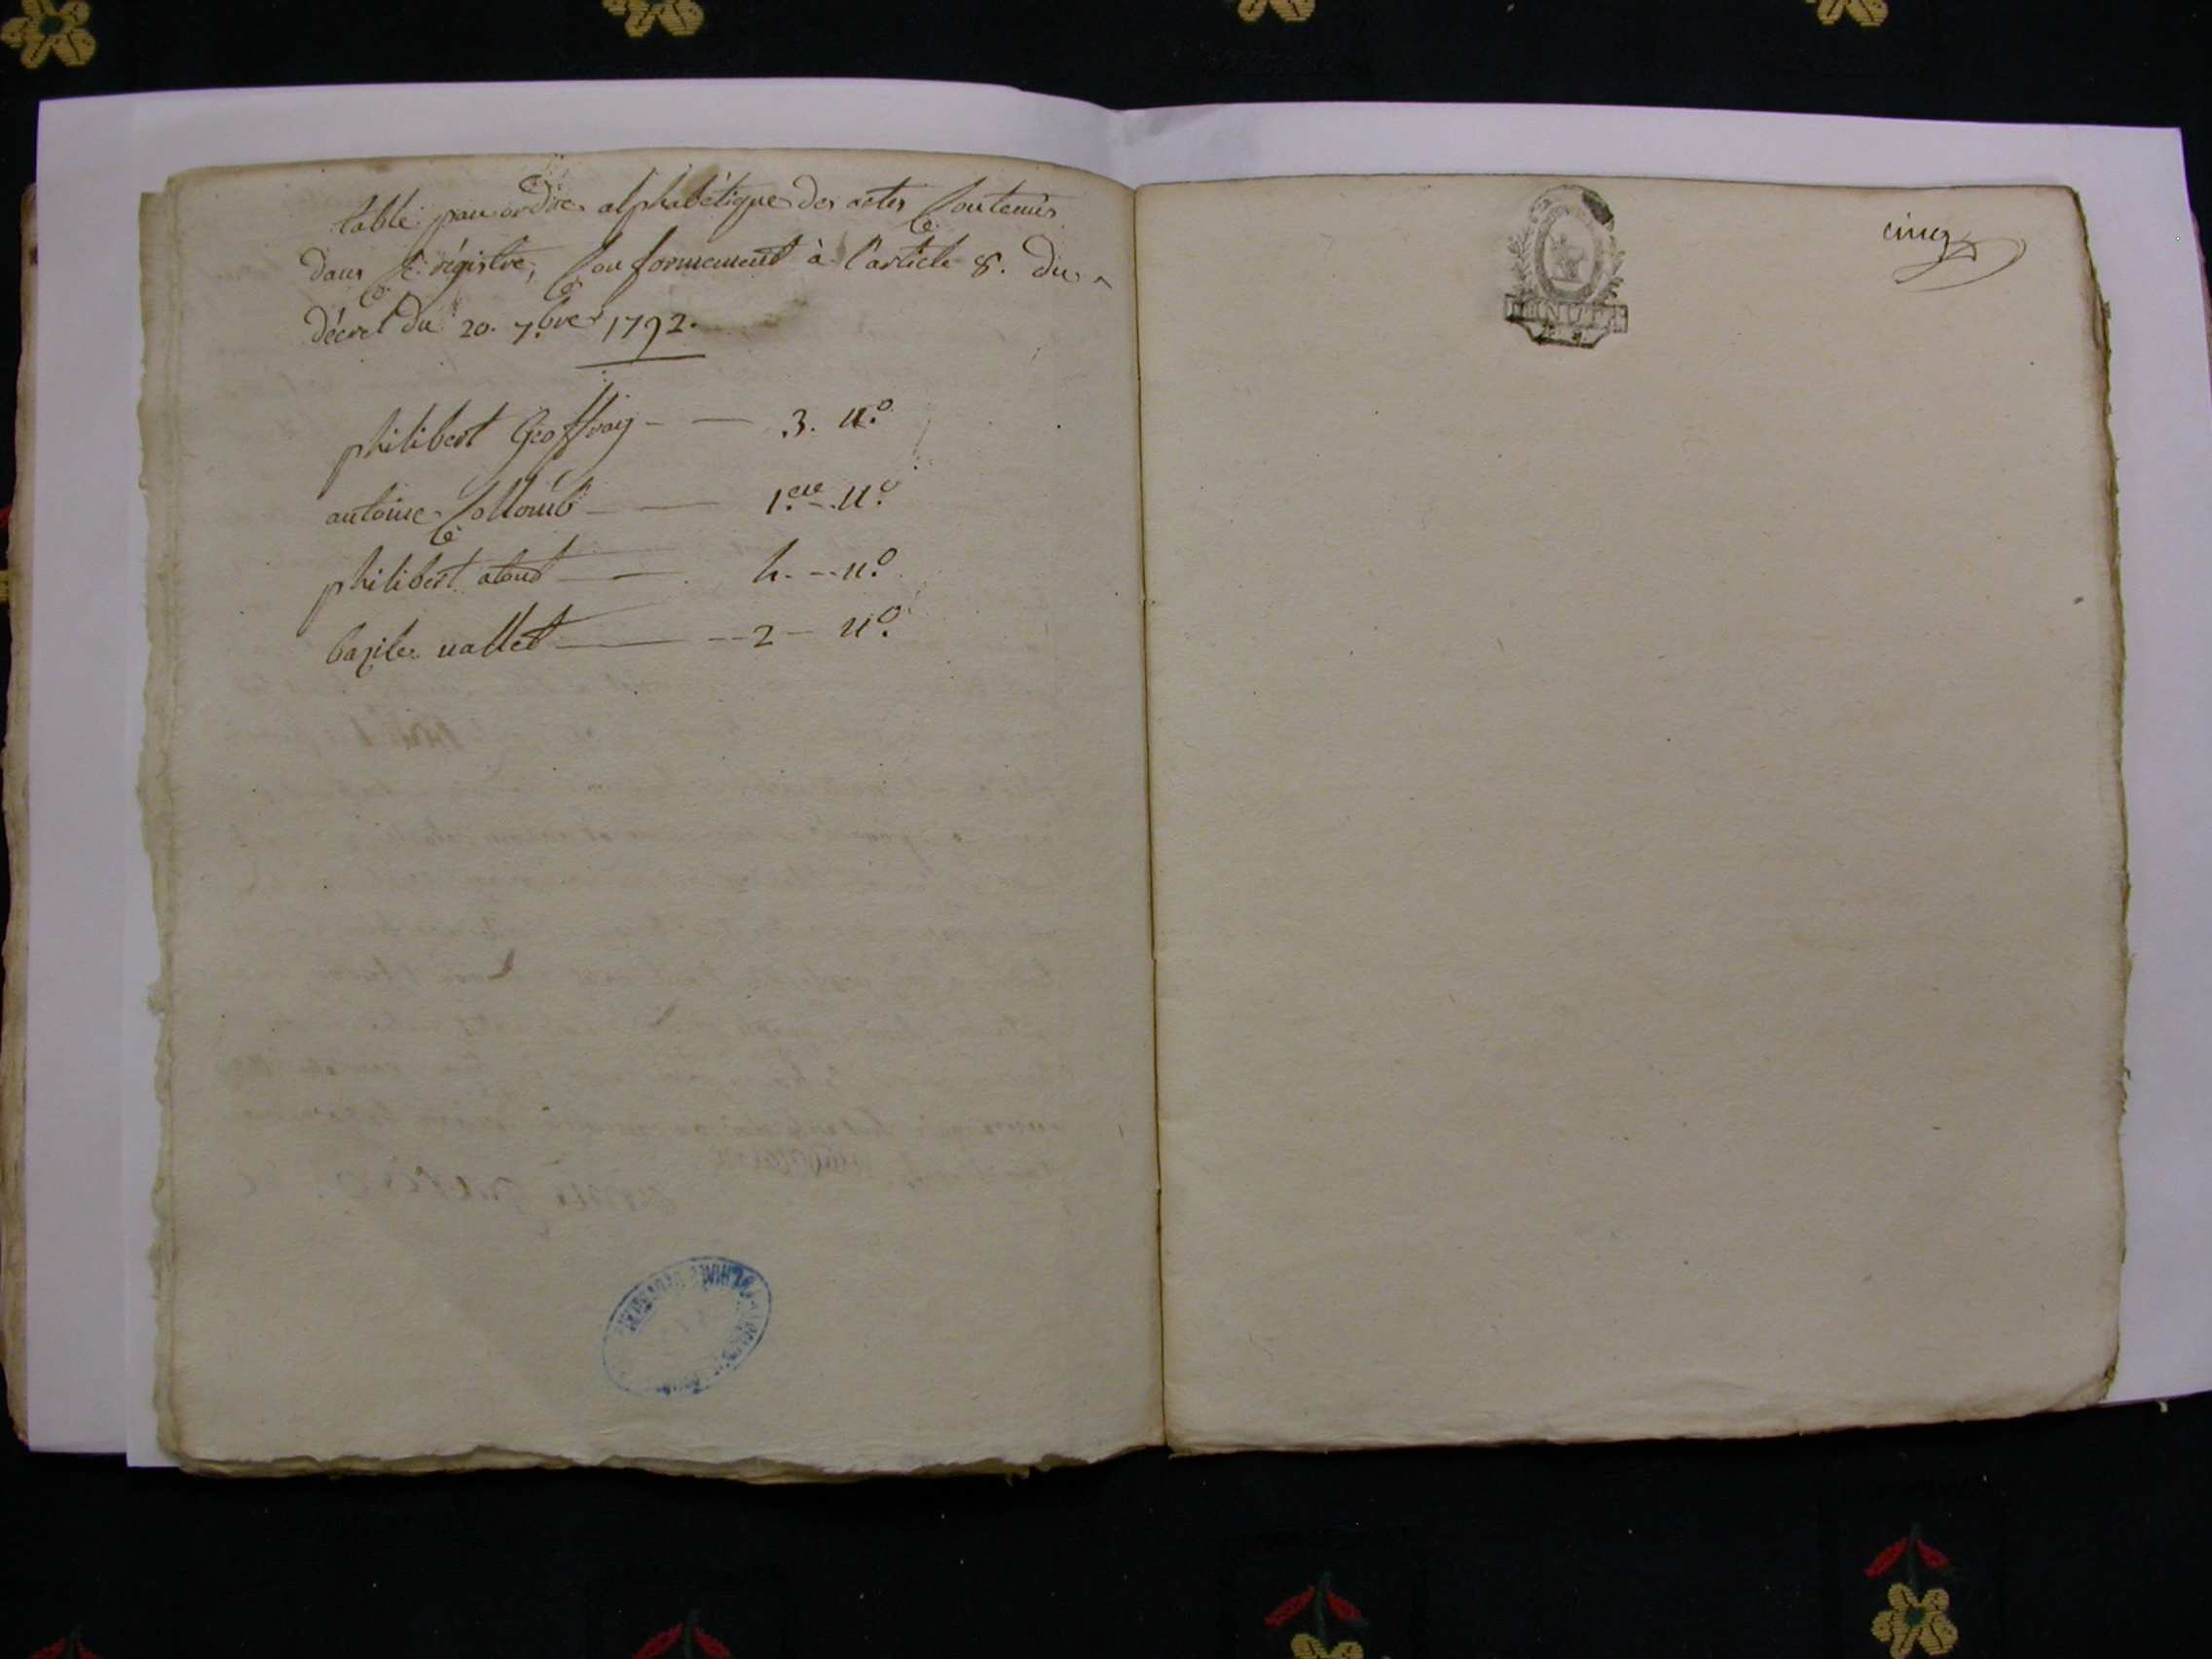 table par ordre alphabétique des actes Contenus
dans Ce régistre, Conformement à l'article 8. du
décret du 20. 7.bre 1792.
philibert Geoffray - — .3. n.o
antoine Collomb — — 1.ere - n.o
philibert aloud — — 4. - - n.o
bazile vallet — — - - 2 - n.o
cinq
MINUTE